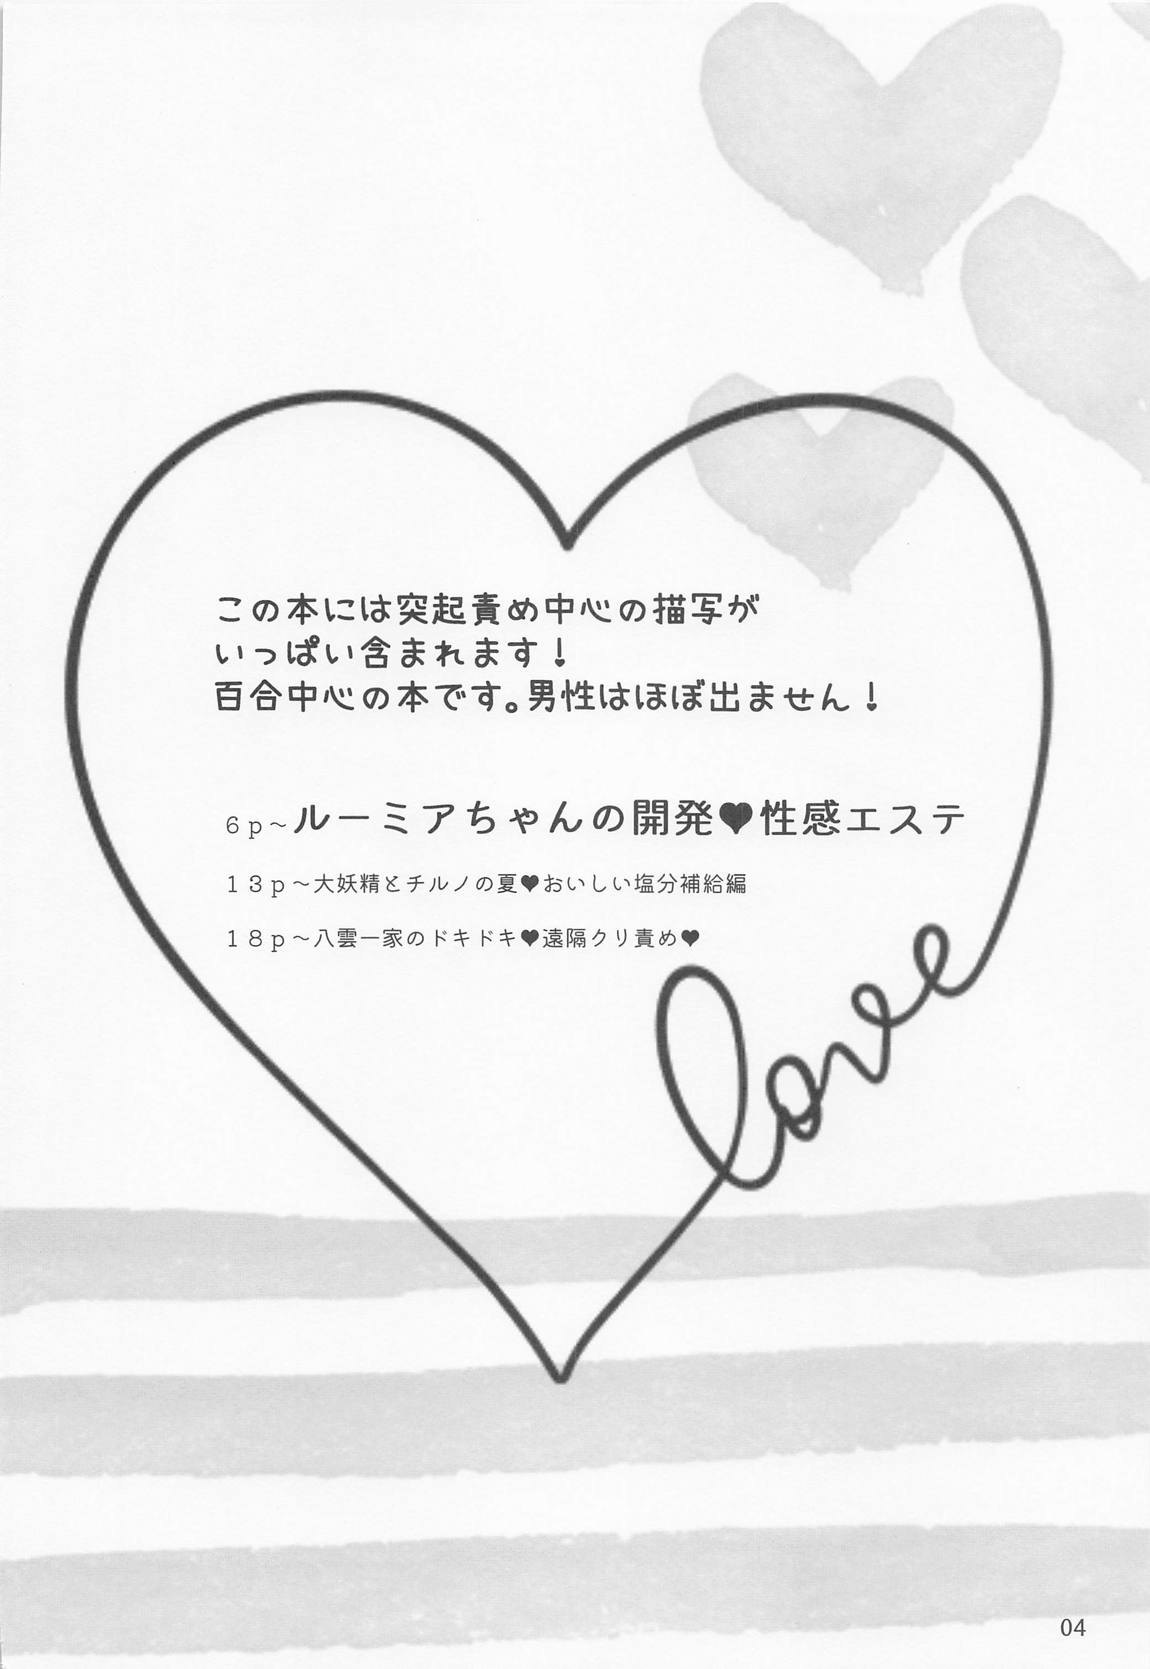 この本には突起責め中心の描写が
いっぱい含まれます！
百合中心の本です。男性はほぼ出ません！
6p～ルーミアちゃんの開発♥性感エステ
13p～大妖精とチルノの夏♥おいしい塩分補給編
18p～八雲一家のドキドキ♥遠隔クリ責め♥
love
04